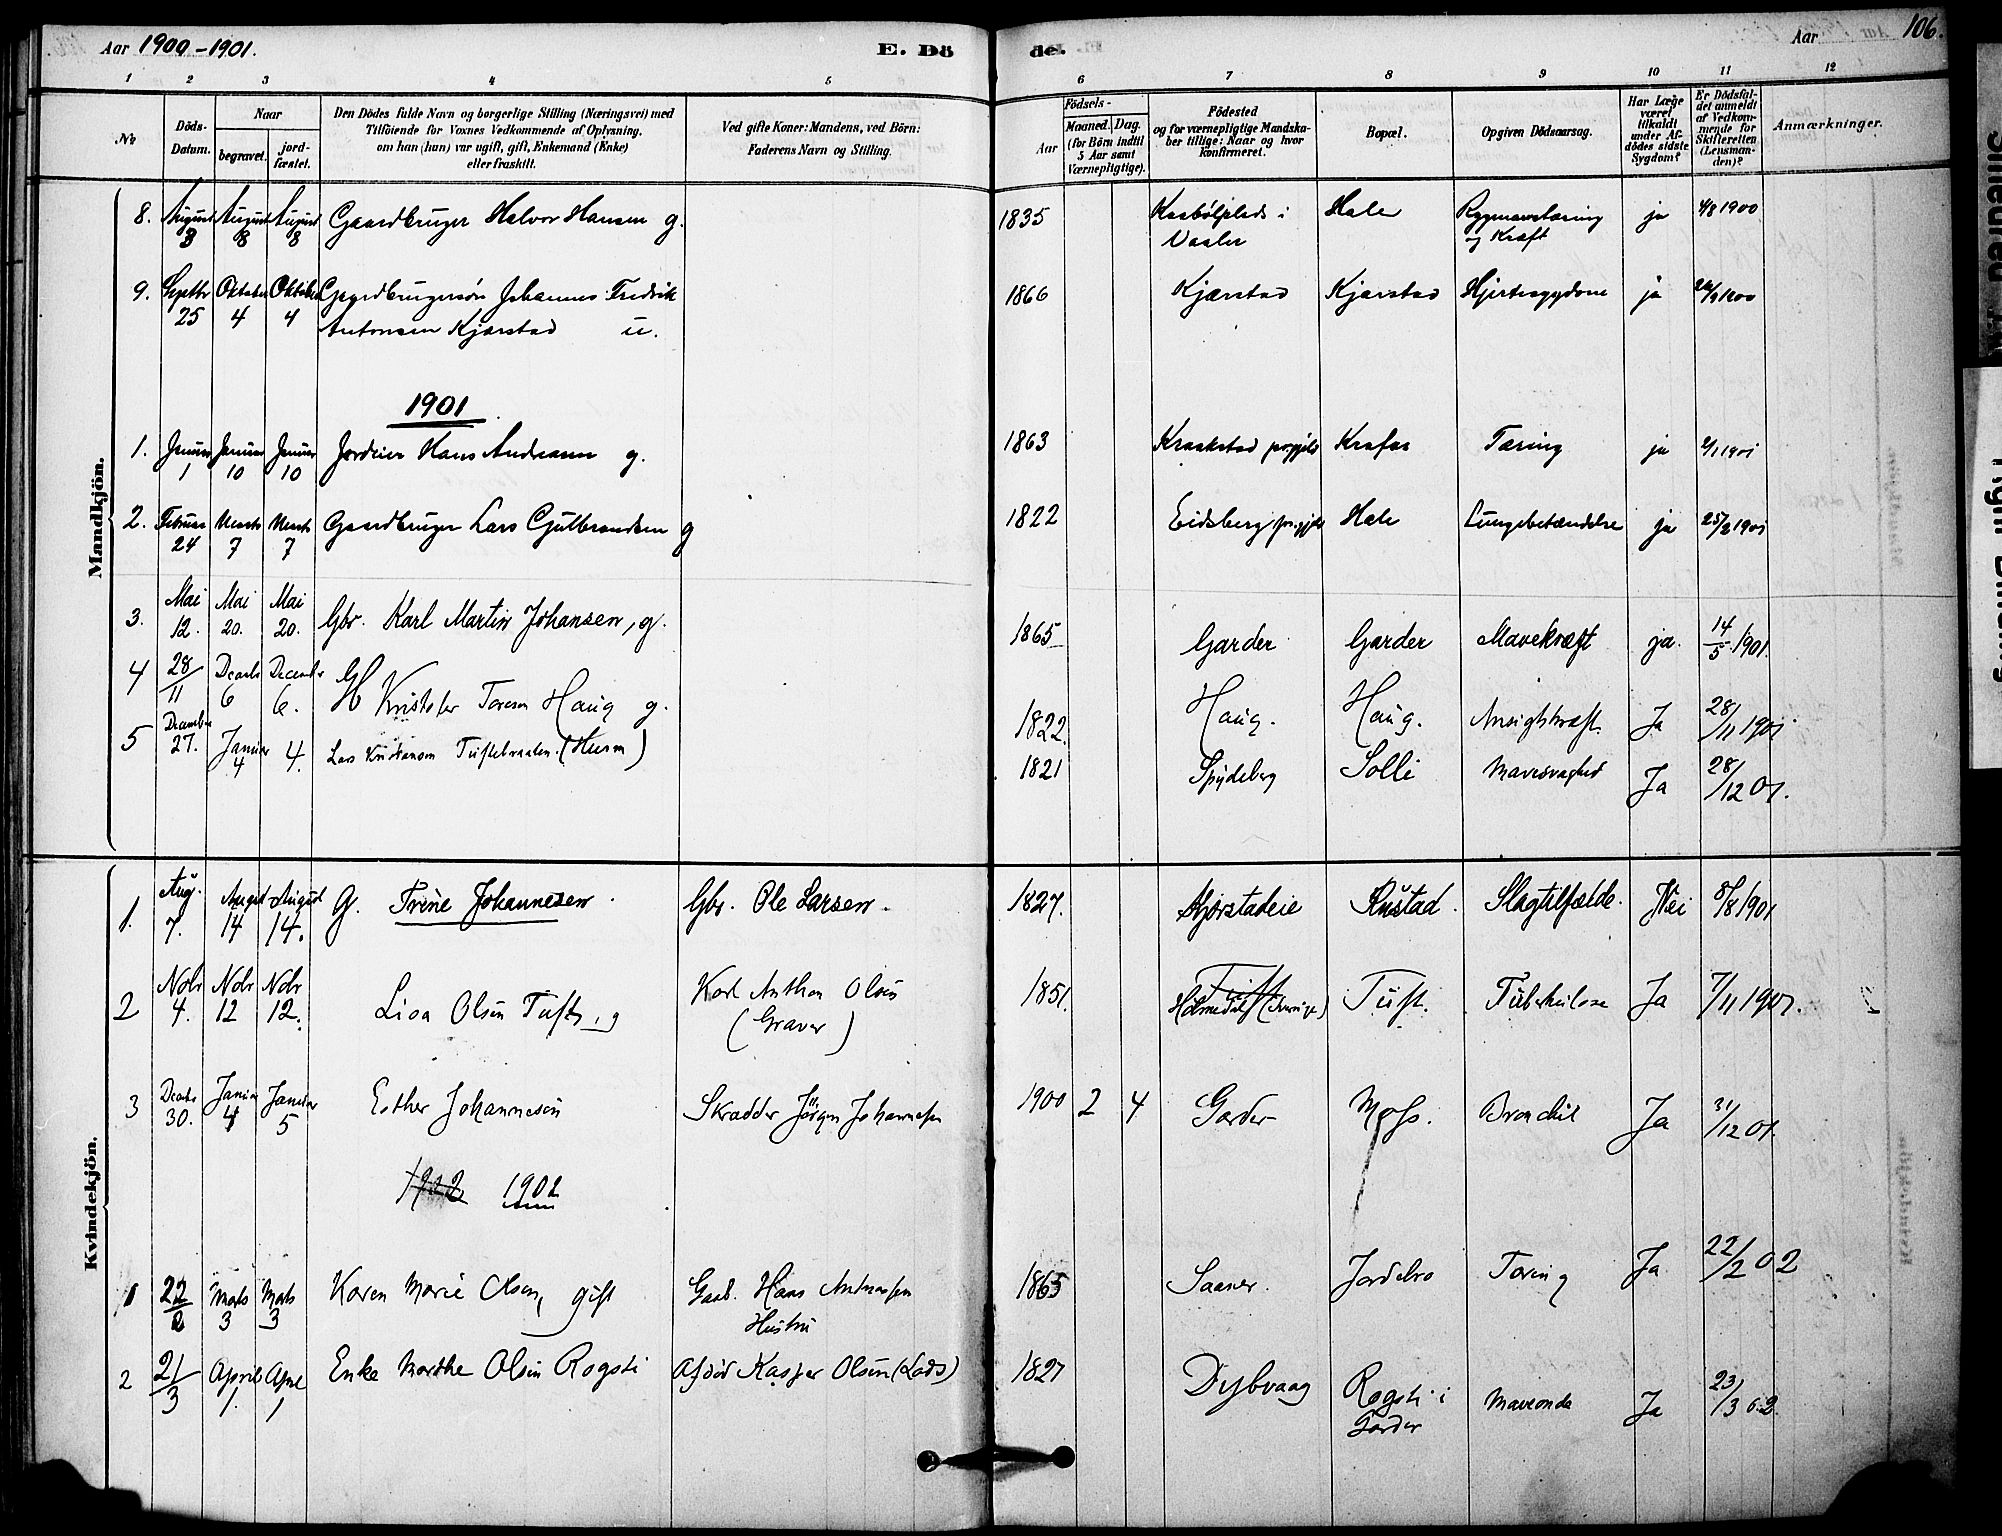 Aar 1900-1901.
E. Dö
de.
Aar
106.
1 2 3 4 5 6 7 8 9 10 11 12
No
Döds-
Datum.
Naar
begravet.
jord-
fæstet.
Den Dödes fulde Navn og borgerlige Stilling (Næringsvei) med
Tilföiende for Voxnes Vedkommende af Oplysning,
om han (hun) var ugift, gift, Enkemand (Enke)
eller fraskilt.
Ved gifte Koner: Mandens, ved Börn:
Faderens Navn og Stilling.
Födsels-
Aar
Maaned. Dag.
(for Börn indtil
5 Aar samt
Værnepligtige).
Födested
og for værnepligtige Mandska-
ber tillige: Naar og hvor
konfirmeret.
Bopæl.
Opgiven Dödsaarsag.
Har Læge
været
tilkaldt
under Af-
dödes sidste
Sygdom?
Er Dödsfal-
det anmeldt
af Vedkom-
mende for
Skifteretten
(Lensman-
den)?
Anmærkninger.
Mandkjön.
8. August August August Gaardbruger Halvor Hansen g. 1835 Kasbølplads i Hale Rygmarvstæring ja 4/8 1900
3 8 8 Vaaler og Kræft
9. Septbr Oktober Oktober Gaardbrugersøn Johannes Fredrik 1866 Kjærstad Kjærstad Hjertesygdom ja 26/9 1900
25 4 4 Antonsen Kjærstad u.
1901
1. Januar Januar Januar Jordeier Hans Andreasen g. 1863 Kraakstad prgjeld Krafas Tæring ja 2/1 1901
1 10 10
2. Februar Marts Marts Gaardbruger Lars Gulbrandsen g 1822 Eidsberg prgjeld Hale Lungebetændelse ja 25/2 1901
24 7 7
3. Mai Mai Mai Gbr. Karl Martin Johansen, g. 1865 Garder Garder Mavekræft ja. 14/5 1901.
12. 20. 20.
4 28/11 Decmbr December Kristofer Toresen Haug g. 1822. Haug. Haug. Ansigtskræft. Ja 28/11 1901.
6 6.
5 December Januar Lars Kristiansen Tuftebraaten. (Husm) 1821 Spydeberg Solli Mavesvaghed Ja 28/12 01.
27. 4 4.
Kvindekjön.
1. Aug. August August G. Trine Johannesen. Gbr. Ole Larsen. 1827. Kjærstadeie Rustad. Slagtilfælde. Nei 8/8 1901
7. 14 14.
2 Nobr Nobr Nobr Lisa Olsen Tuft, g Karl Anthon Olsen 1851. Tuft Tuft. Tuberkulose Ja 7/11 1901.
4. 12 12. (Graver) Holmedal (Sverige)
3 Decmbr Januar Januar Esther Johannesen Skrædder Jörgen Johannesen 1900 2 4 Garder Moss. Bronchit Ja 31/12 01.
30. 4 5
1902 1902
1 22/2 Marts Marts Karen Marie Olsen, gift Gaardb. Hans Andreasen 1865 Saaner. Jordebro Tæring Ja 22/2 02
3 3 Hustru
2 21/3 April April Enke Marthe Olsen Rogsti Afdød Kasper Olsen (Lods) 1827 Dybvaag Rogsti i Maveonde Ja 23/3 02.
1. 1 Garder